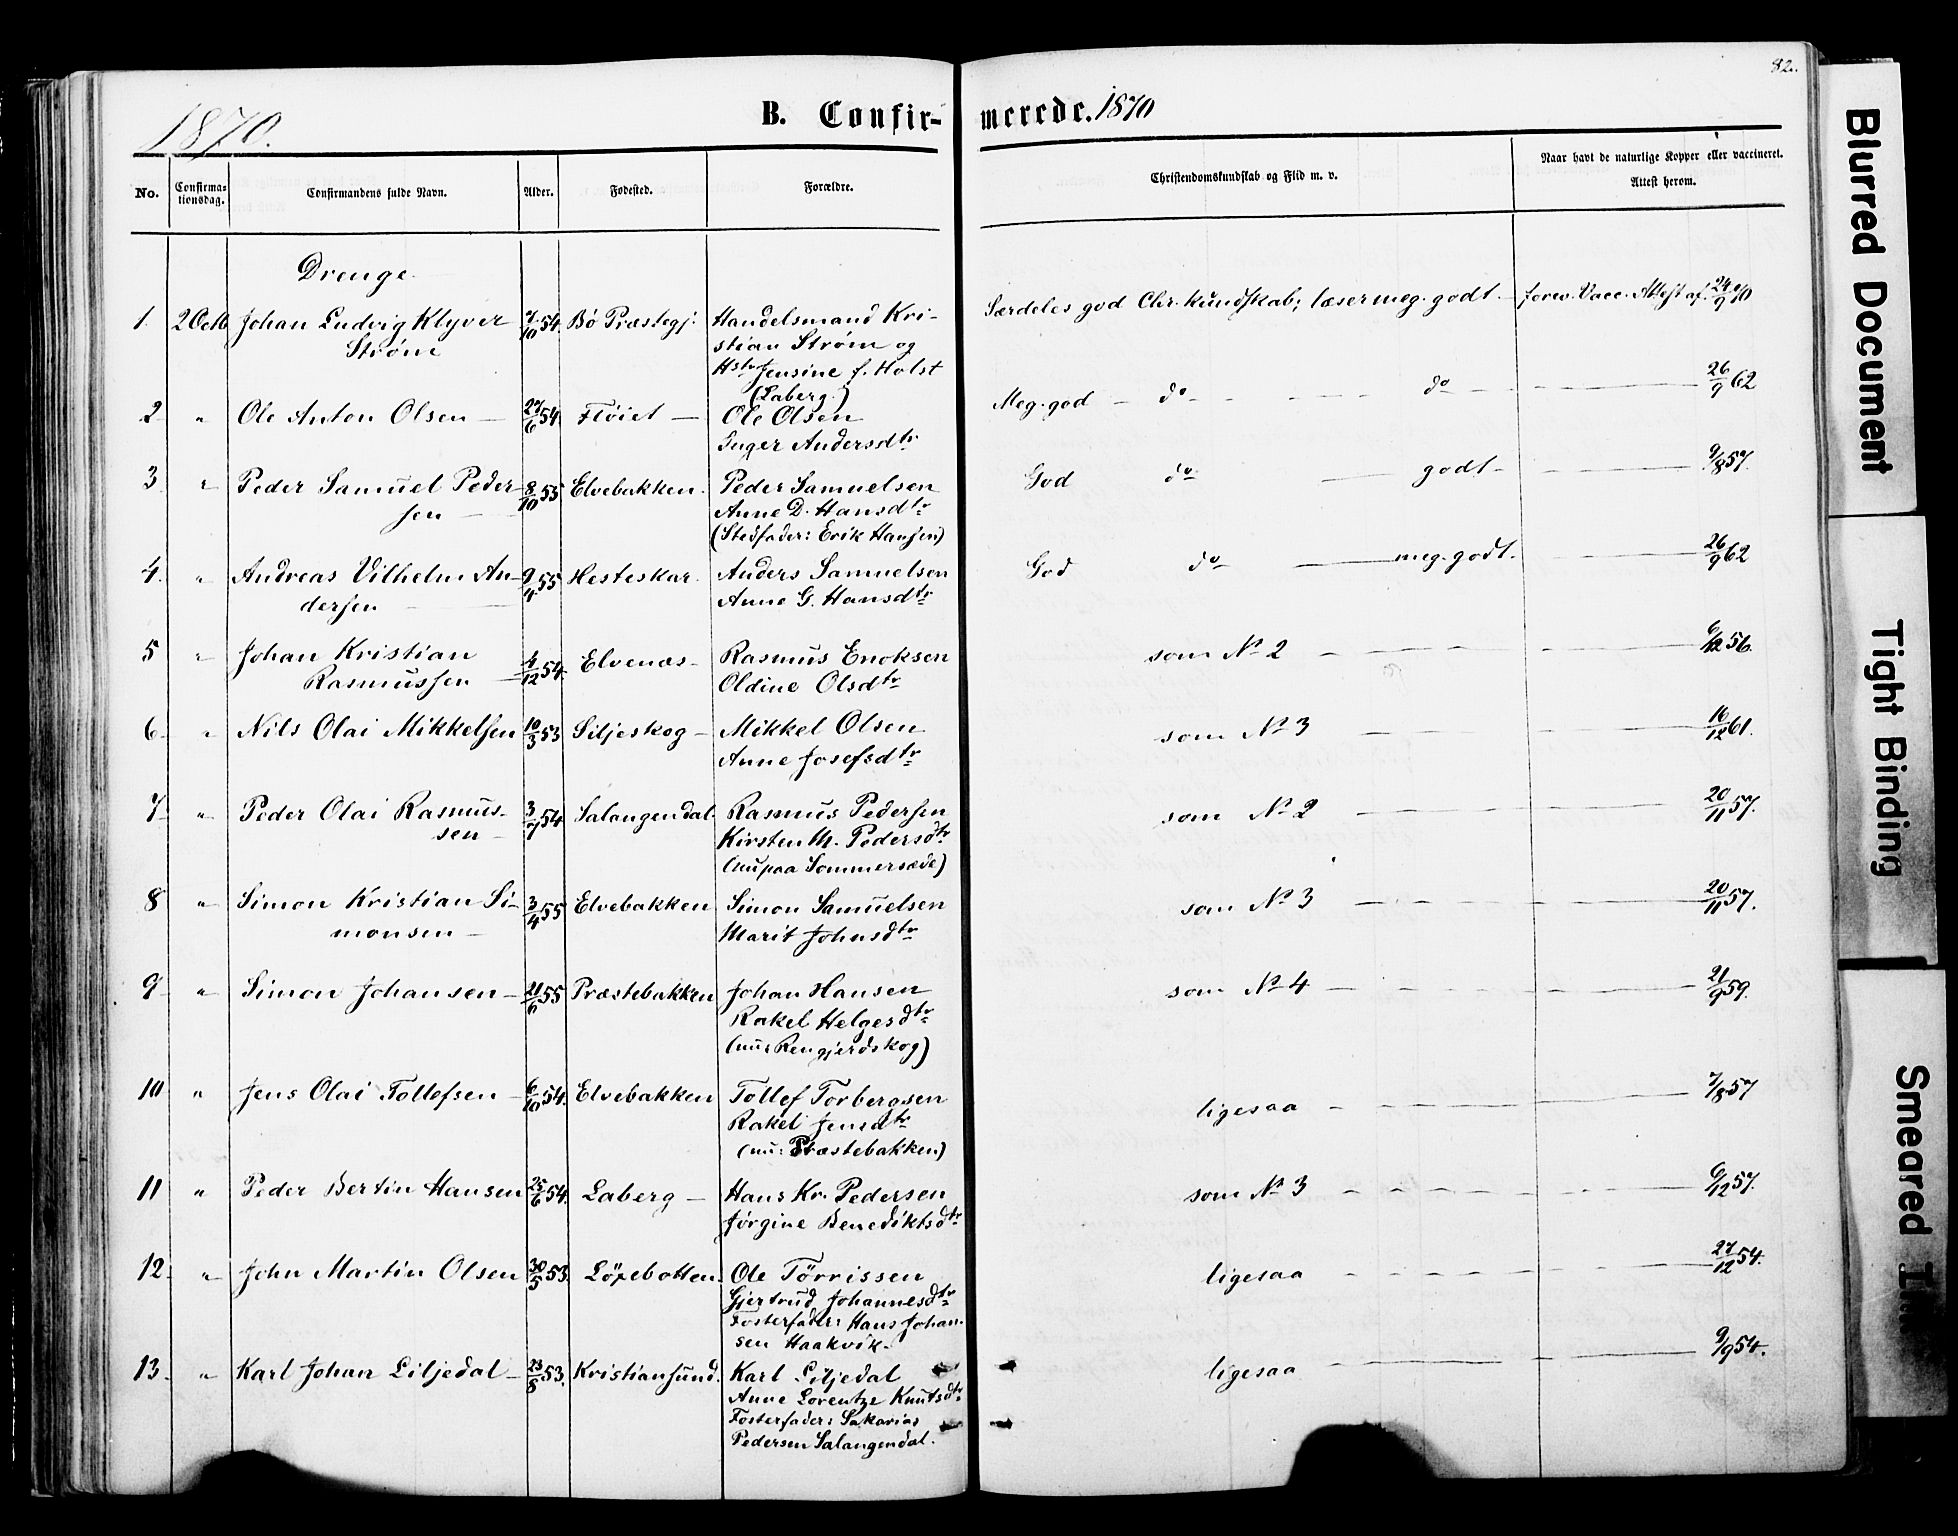 82.
1870.
B. Confir-
merede. 1870
No.
Confirma-
tionsdag.
Confirmandens fulde Navn.
Alder.
Fødested.
Forældre.
Christendomskundskab og Flid m. v.
Naar havt de naturlige Kopper eller vaccineret.
Attest herom.
Drenge
1. 2 Octb Johan Ludvig Klyver 7/10 54. Bø Præstegj. Handelsmand Kri- Særdeles god Chr. kundskab; læser meg. godt - forev. Vacc. Attest af 24/9 70
Strøm stian Strøm og
Hstr Jensine f. Holst
(Laberg.)
2 " Ole Anton Olsen - 27/6 54. Fløiet - Ole Olsen Meg. god - do - do - 26/9 62
Inger Andersdtr
3 " Peder Samuel Peder- 8/10 55 Elvebakken. Peder Samuelsen God do - godt - 9/8 57.
sen - Anne D. Hansdtr
(Stedfader: Erik Hansen)
4. " Andreas Vilhelm An- 9/4 55 Hesteskar. Anders Samuelsen God do - meg. godt. - 26/9 62
dersen - Anne G. Hansdtr
5 " Johan Kristian 4/12 54. Elvenæs - Rasmus Enoksen som No 2 - 6/12 56.
Rasmussen - Oldine Olsdtr
6 " Nils Olai Mikkelsen 10/3 53 Siljeskog - Mikkel Olsen som No 3 - 16/12 61.
Anne Josefsdtr
7 " Peder Olai Rasmus- 3/7 54 Salangendal Rasmus Pedersen som No 2 - 20/11 57.
sen - Kirsten M. Pedersdtr
(nu paa Sommersæde)
8 " Simon Kristian Si- 3/4 55 Elvebakken Simon Samuelsen som No 3 - 20/11 57.
monsen - Marit Johnsdtr
9 " Simon Johansen - 21/6 55 Præstebakken Johan Hansen som No 4 - 21/9 59.
Rakel Helgesdtr
(nu: Rengjerdskog)
10 " Jens Olai Tollefsen - 6/10 54. Elvebakken Tollef Torbergsen ligesaa - 7/8 57
Rakel Jensdtr
(nu: Præstebakken)
11 " Peder Bertin Hansen 25/6 54. Laberg - Hans Kr. Pedersen som No 3 - 6/12 57.
Jørgine Benediktsdtr
12. " John Martin Olsen 30/5 53. Löxebotten. Ole Törrissen ligesaa - 27/12 54.
Gjertrud Johannesdtr
Fosterfader: Hans Johan-
sen Haakvik.
13. " Karl Johan Liljedal - 23/8 53. Kristiansund. Karl Liljedal ligesaa - 9/9 54.
Anne Lorentze Knutsdtr
Fosterfader: Sakarias
Pedersen Salangendal.
Blurred Document
Tight Binding
Smeared